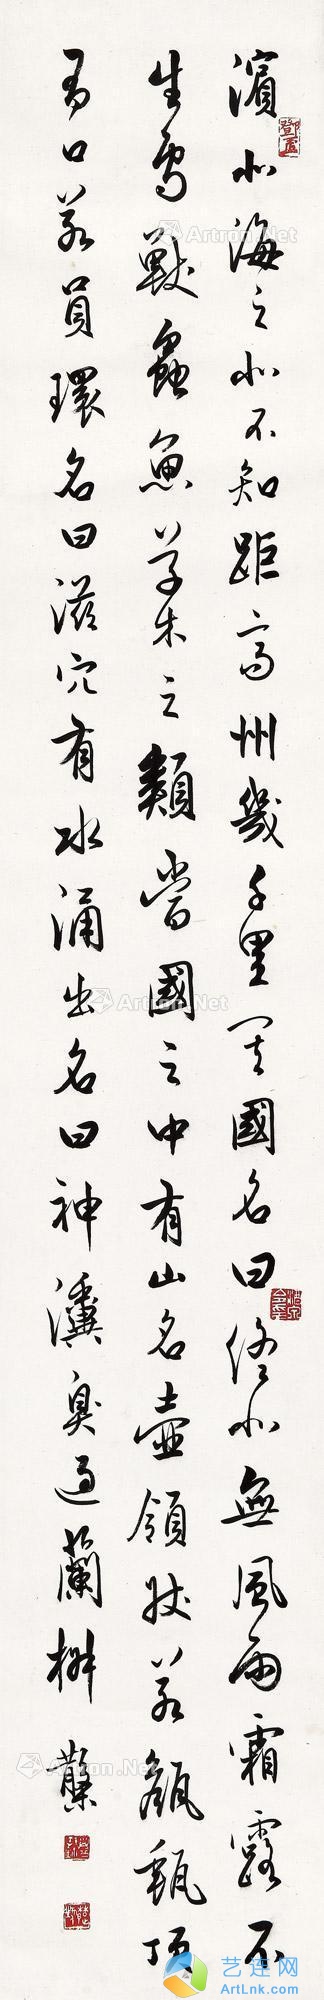 濱北海之北不知距齊州幾千里其國名曰終北無風雨霜露不
生鳥獸蟲魚草木之類當國之中有山名壺領狀若甔甀頂
有口若員環名曰滋穴有水涌出名曰神瀵臭過蘭椒
Artron.Net
艺连网
ArtLink.Net